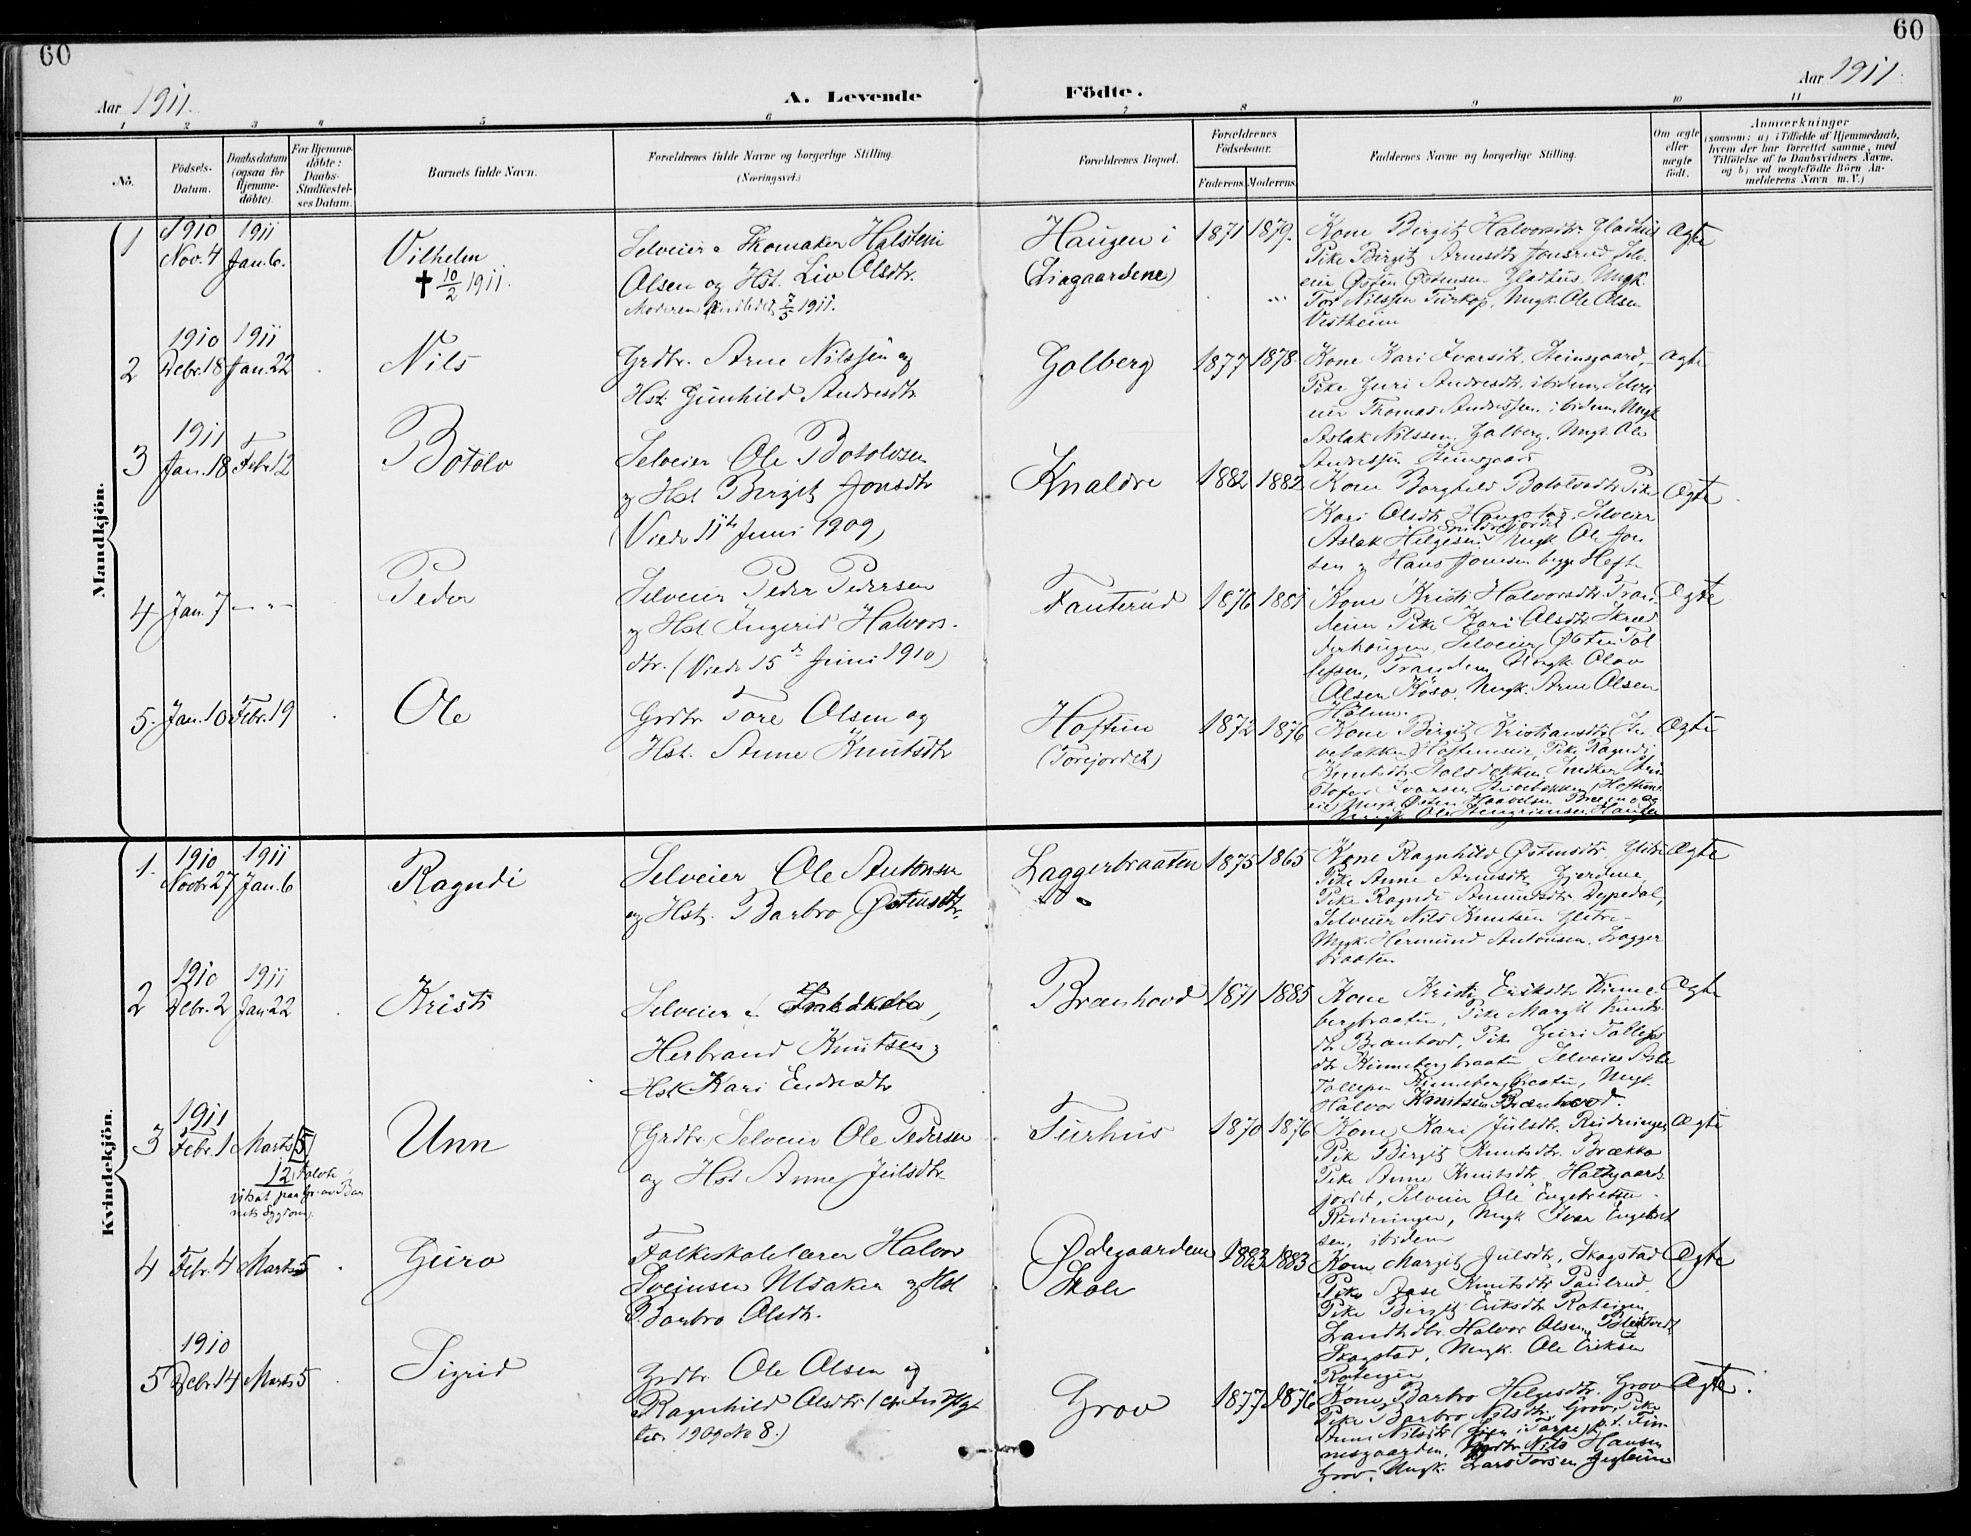 60
60
Aar 1911.
A. Levende Födte.
Aar 1911.
1 2 3 4 5 6 7 8 9 10 11
No.
Födsels-Datum.
Daabsdatum (ogsaa for Hjemme-döbte).
For Hjemme-döbte: Daabs-Stadfæstel-ses Datum.
Barnets fulde Navn.
Forældrenes fulde Navne og borgerlige Stilling.
(Næringsvei.)
Forældrenes Bopæl.
Forældrenes Födselsaar.
Faderens.
Moderens.
Faddernes Navne og borgerlige Stilling.
Om ægte eller uægte födt.
Anmærkninger
(saasom: a) i Tilfælde af Hjemmedaab, hvem der har forrettet samme, med Tilföielse af to Daabsvidners Navne. og b) ved uægtefödte Börn An-melderens Navn m. V.)
Mandkjön.
1
1910
Nov. 4
1911
Jan. 6.
Vilhelm
✝ 10/2 1911.
Selveier & Skomaker Halstein
Olsen og Hst. Liv Olsdtr.
Moderen 7/5 1911.
Haugen i
(Liagaardene)
1871
1879.
Kone Birgit Halvorsdtr. Gladhus
Pike Birgit Arnesdtr Jonsrud Selv-
eier Østen Østensen Gladhus, Ungk.
Tor Nilssen Turkop, Ungk. Ole Olsen
Vestheim
Ægte
2
1910
Debr. 18
1911
Jan. 22
Nils
Grdbr. Arne Nilssen og
Hst. Gunhild Andresdtr
Golberg
1877
1878
Kone Kari Ivarsdtr. Steinsgaard,
Pike Guri Andresdtr. ibidem, Selvei
er Thomas Andressen ibidem, Ungk
Aslak Nilssen, Golberg, Ungk. Ole
Andressen Steinsgaard
Ægte
3
1911
Jan. 18
Febr 12
Botolv
Selveier Ole Botolvsen
og Hst Birgit Jonsdtr
(Viede 11te Juni 1909)
Knaldre
1882
1882
Kone Borghild Botolvsdtr Pike
Kari Olsdtr Haugstad, Selveier
Aslak Helgesen Ungk Ole Jon
sen og Hans Jonsen begge Heft
Ægte
4
Jan. 7
- " -
Peder
Selveier Peder Pedersen
og Hst Ingerid Halvors-
dtr. (Viede 15de Juni 1910)
Fauterud
1876
1881
Kone Kristi Halvorsdtr Tran-
deim Pike Kari Olsdtr Skræd
derhaugen, Selveier Østen Tol
lefssen, Trandem Ungk Olav
Olsen Köso. Ungk. Arne Olsen
Holum.
Ægte
5.
Jan. 10
Febr. 19
Ole
Grdbr Tore Olsen og
Hst. Anne Knutsdtr
Hoftun
(Torejordet)
1872
1876
Kone Birgit Kristiansdtr
Hoftuneie, Pike Ragndi
Knutsdtr
Ægte
Kvindekjön.
1.
1910
Novbr. 27
1911
Jan. 6
Ragndi
Selveier Ole Antonsen
og Hst. Barbro Østensdtr.
Laggerbraaten
1875
1865
Kone Ragnhild Østensdtr. Glitre
Pike Anne Arnesdtr Gjerdene
Pike Ragndi Amundsdtr Dypedal,
Selveier Nils Knutsen Glitre-
Ungk. Hermund Antonsen. Lagger
braaten
Ægte
2
1910
Debr. 2
1911
Jan. 22
Kristi
Selveier &
Herbrand Knutsen og
Hst Kari Endresdtr
Brænhovd
1871
1885
Kone Kristi Eriksdtr Kinne
bergbraaten, Pike Margit Knuts
dtr Brænhovd, Pike Guri Tollefs
dtr Kinnebergbraaten Selveier Asle
Tollefsen Kinnebergbraaten, Ungk.
Halvor Knutsen Brænhovd.
Ægte
3
1911
Febr. 1
Marts 5
12
Unn
Grdbr, Selveier Ole Pedersen
og Hst Anne Juilsdtr-
Turhus
1870
1876
Kone Kari Julsdtr. Rudningen
Pike Birgit Knutsdtr. Brækko
Pike Anne Knutsdtr. Haltgaards
jordet, Selveier Ole Engebretsen
Rudningen, Ungk Ivar Engebret
sen, ibidem
Ægte
4
Febr. 4
Marts 5
Guro
Folkeskolelærer Halvor
Sveinsen Alsaker og Hst
Barbro Olsdtr.
Ødegaardens
Skole
1883
1883
Kone Margit Julsdtr, Skogstad
Pike Aase Knutsdtr Paulrud.
Pike Birgit Eriksdtr Roteigen
Landhdlr. Halvor Olsen,
Skogstad, Ungk. Ole Eriksen
Roteigen
Ægte
5
1910
Debr. 14
Marts 5
Sigrid
Grdbr Ole Olsen og
Ragnhild Olsdtr
1909 No 8.)
Grov
1877
1876
Kone Barbro Helgesdtr. Grov
Pike Barbro Nilsdtr. Grov, Pike
Anne Nilsdtr
nesgaarden, Grdbr Nils Hansen
Grov. Ungk. Lars Torsen Jegleim
Ægte.